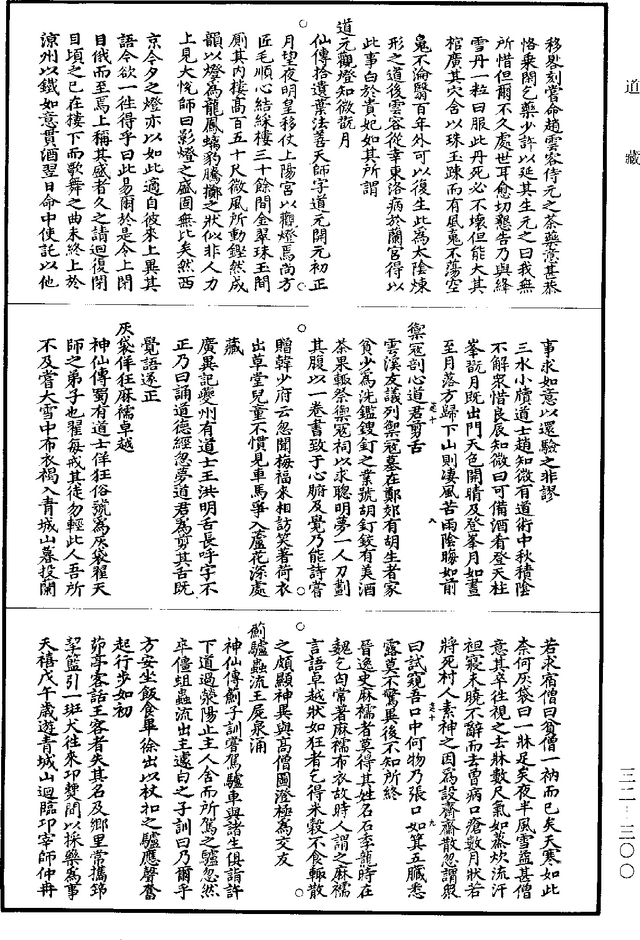 道藏
三二—三〇〇
移晷刻當命趙雲容侍元之茶藥意甚恭
恪乘閑乞藥少許以延其生元之曰我無
所惜但爾不久處世耳愈切懇告乃與絳
雪丹一粒曰服此丹死必不壞但能大其
棺廣其穴含以珠玉踈而有風䰟不蕩空
䰟不淪翳百年外可以復生此為太陰煉
形之道後雲容從幸東洛病於蘭宮得以
此事白於貴妃如其所謂
道元觀燈知微翫月
仙傳拾遺葉法善天師字道元開元初正
月望夜明皇移仗上陽宮以觀燈焉尚方
匠毛順心結綵樓三十餘間金翠珠玉間
廁其內樓高百五十尺微風所動鏗然成
韻以燈為龍鳳螭豹騰擲之狀似非人力
上見大悅師曰影燈之盛固無比矣然西
京今夕之燈亦以如此適自彼來上異其
語今欲一往得乎曰此易爾於是令上閉
目俄而至焉上稱其盛者久之請迴復閉
目頃之已在樓下而歌舞之曲未終上於
涼州以鐵如意貫酒翌日命中使託以他
事求如意以還驗之非謬
三水小牘道士趙知微有道術中秋積陰
不解衆惜良辰知微曰可備酒肴登天柱
峯翫月既出門天色開晴及登峯月如晝
至月落方歸下山則凄風苦雨陰晦如前
禦寇剖心道君剪舌
雲溪友議列禦寇墓在鄭郊有胡生者家
貧少為洗鑑鎪釘之業號胡釘鉸有美酒
茶果輒祭禦寇祠以求聰明夢一人刀劃
其腹以一卷書致于心腑及覺乃能詩嘗
贈韓少府云忽聞梅福來相訪笑著荷衣
出草堂兒童不慣見車馬爭入蘆花深處
藏
廣異記夔州有道士王洪明舌長呼字不
正乃曰誦道德經忽夢道君為剪其舌既
覺語遂正
灰袋佯狂麻襦卓越
神仙傳蜀有道士佯狂俗號為灰袋翟天
師之弟子也翟每戒其徒勿輕此人吾所
不及嘗大雪中布衣褐入青城山暮投蘭
若求宿僧曰貧僧一衲而已矣天寒如此
奈何灰袋曰一牀足矣夜半風雪益甚僧
意其卒往視之去牀數尺氣如蒸炊流汗
袒寢未曉不辭而去曽病口瘡數月狀若
將死村人素神之因為設齋齋散忽謂衆
曰試窺吾口中何物乃張口如箕五臟悉
露莫不驚異後不知所終
晉逸史麻襦者莫得其姓名石季龍時在
魏乞匄常著麻襦布衣故時人謂之麻襦
言語卓越狀如狂者乞得米穀不食輒散
之頗顯神異與高僧圖澄極為交友
薊驢蟲流王屍泉涌
神仙傳薊子訓嘗駕驢車與諸生俱詣許
下道過滎陽止主人舍而所駕之驢忽然
卒僵蛆蟲流出主遽白之子訓曰乃爾乎
方安坐飯食畢徐出以杖扣之驢應聲奮
起行步如初
茆亭客話王客者失其名及鄉里常攜筇
挈籃引一斑犬往來邛雙間以採藥為事
天禧戊午歲遊青城山迴臨邛宰師仲冉